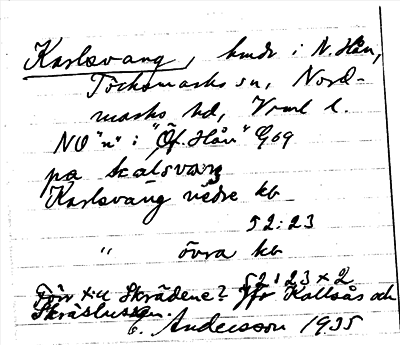 Karlsvang, hmde i N. Hån,
Töcksmarks sn, Nord-
marks hd, Vrml l.
NO "n" i "Öf. Hån" G69
på kalsvang
Karlsvang nedre kb
52:23
" övra kb
52:23 x 2
Förr Skrädene? Jfr Kallsås och
E. Andersson 1935